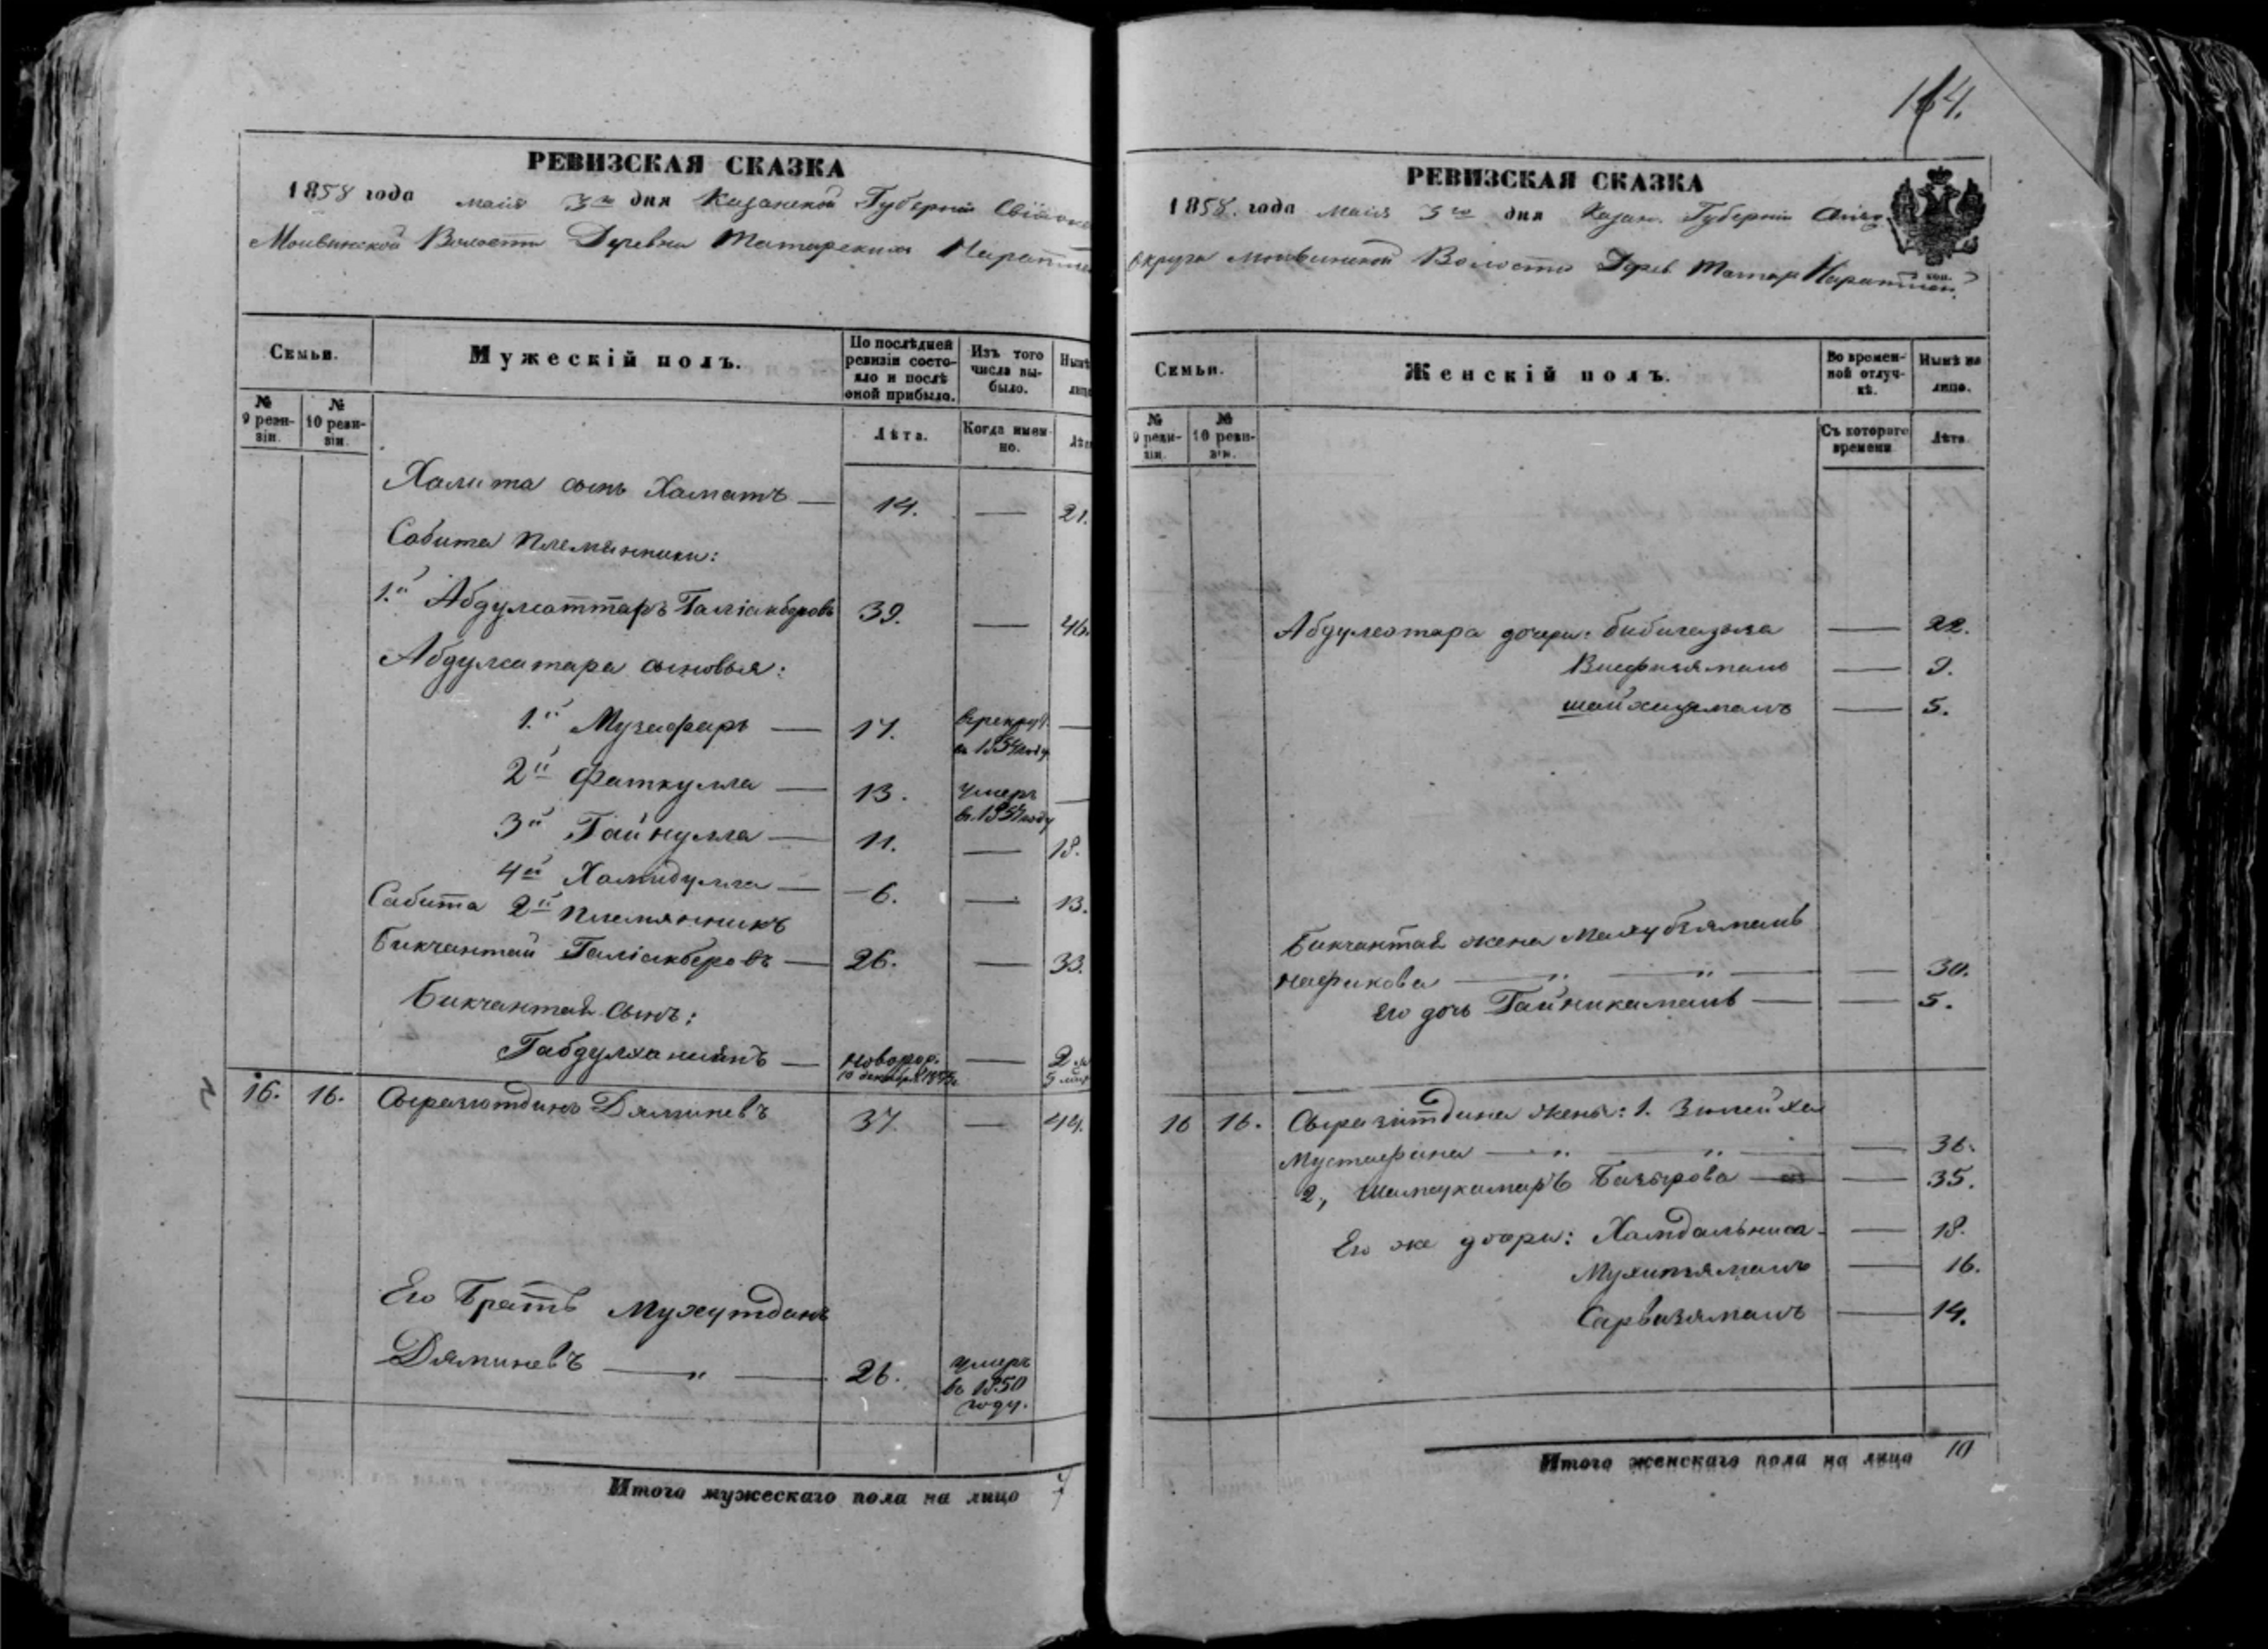 РЕВИЗСКАЯ СКАЗКА
1858 года майя 3го дня Казанской Губерніи
Волости Деревни Татарскихъ
Семьи.
Мужескій полъ.
По послѣдней ревизіи состояло и послѣ оной прибыло.
Изъ того числа выбыло.
Нынѣ
№ 9 ревизіи.
№ 10 ревизіи.
Лѣта.
Когда именно.
Халита сынъ Хаматъ — 14. — 21.
Сабита племянники:
1й Абдулсаттаръ Галіакберовъ 39. — 46.
Абдулсатара сыновья:
1й Музафаръ — 17. —
въ 1854 году
2й Фаткулла — 13. умеръ —
въ 1854 году
3й Гайнулла — 11. — 18.
4й Хамидулла — 6. — 13.
Сабита 2й племянникъ
Бикчантай Галіакберовъ — 26. — 33.
Бикчантая сынъ:
— новорож. — 2
10 декабря
16. 16. Сыразютдинъ Дяминевъ 37. — 44.
Его братъ Мухутдинъ
Дяминевъ — " — 26. умеръ
въ 1850
году.
Итого мужескаго пола на лицо 7
164.
РЕВИЗСКАЯ СКАЗКА
1858. года майя 3го дня Казан. Губерніи
округа Волости Дерев Татар
коп.
Семьи.
Женскій полъ.
Во временной отлучкѣ.
Нынѣ на лицо.
№ 9 ревизіи.
№ 10 ревизіи.
Съ котораго времени
Лѣта
Абдулсатара дочери: — 22.
— 9.
— 5.
Бикчантая жена
— " — " — — 30.
его дочь Гайникамалъ — — 5.
16 16. жены: 1. Зюлейха
Мустафина — " — " — — 36.
2, Шамсукамаръ — 35.
Его же дочери: — 18.
— 16.
— 14.
Итого женскаго пола на лицо 10